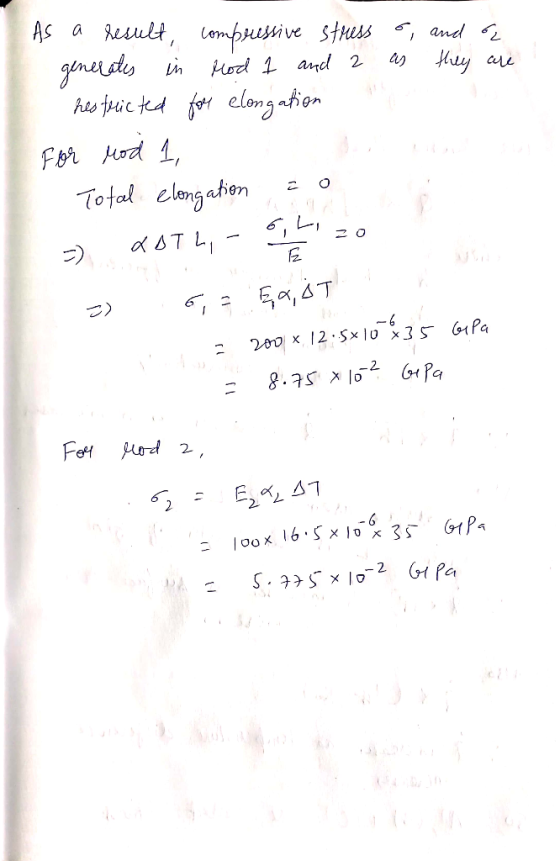 As a result, compressive stress σ₁ and σ₂
generates in rod 1 and 2 as they are
restricted for elongation
For rod 1,
Total elongation = 0
=> αΔT L₁ - σ₁L₁/E = 0
=> σ₁ = E₁α₁ΔT
= 200 × 12.5×10⁻⁶×35 GPa
= 8.75 × 10⁻² GPa
For rod 2,
σ₂ = E₂α₂ ΔT
= 100× 16.5 × 10⁻⁶× 35 GPa
= 5.775 × 10⁻² GPa